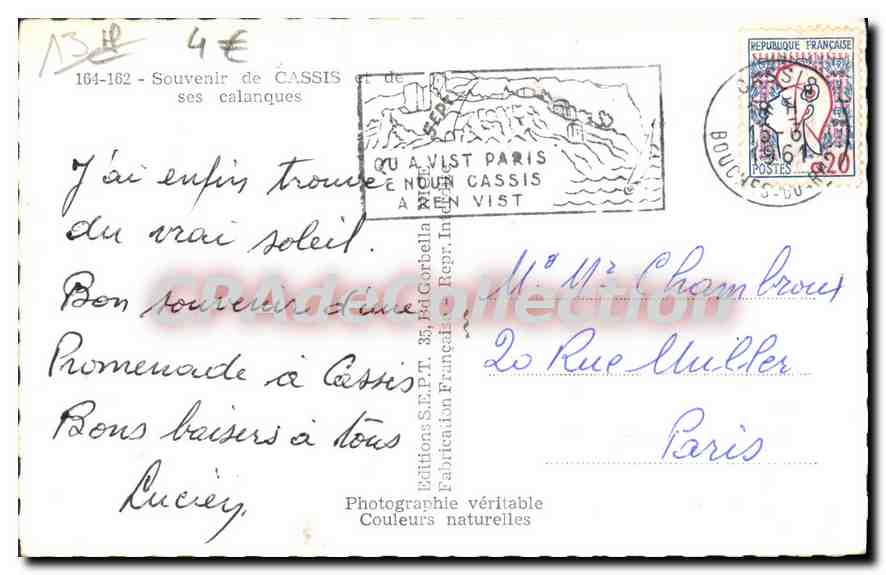 13 4€
164-162 - Souvenir de CASSIS et de
ses calanques
J'ai enfin trouvé
du vrai soleil.
Bon souvenir d'une
Promenade à Cassis
Bons baisers à tous
Lucien
QU A VIST PARIS
E NOUN CASSIS
A REN VIST
REPUBLIQUE FRANÇAISE
POSTES 0,20
CASSIS
1961
BOUCHES-DU-RH
Editions S.E.P.T. 35, Bd Gorbella NICE
Fabrication Française - Repr. Interdite
CPAdeCollection
Mr Chambroux
20 Rue Muller
Paris
Photographie véritable
Couleurs naturelles